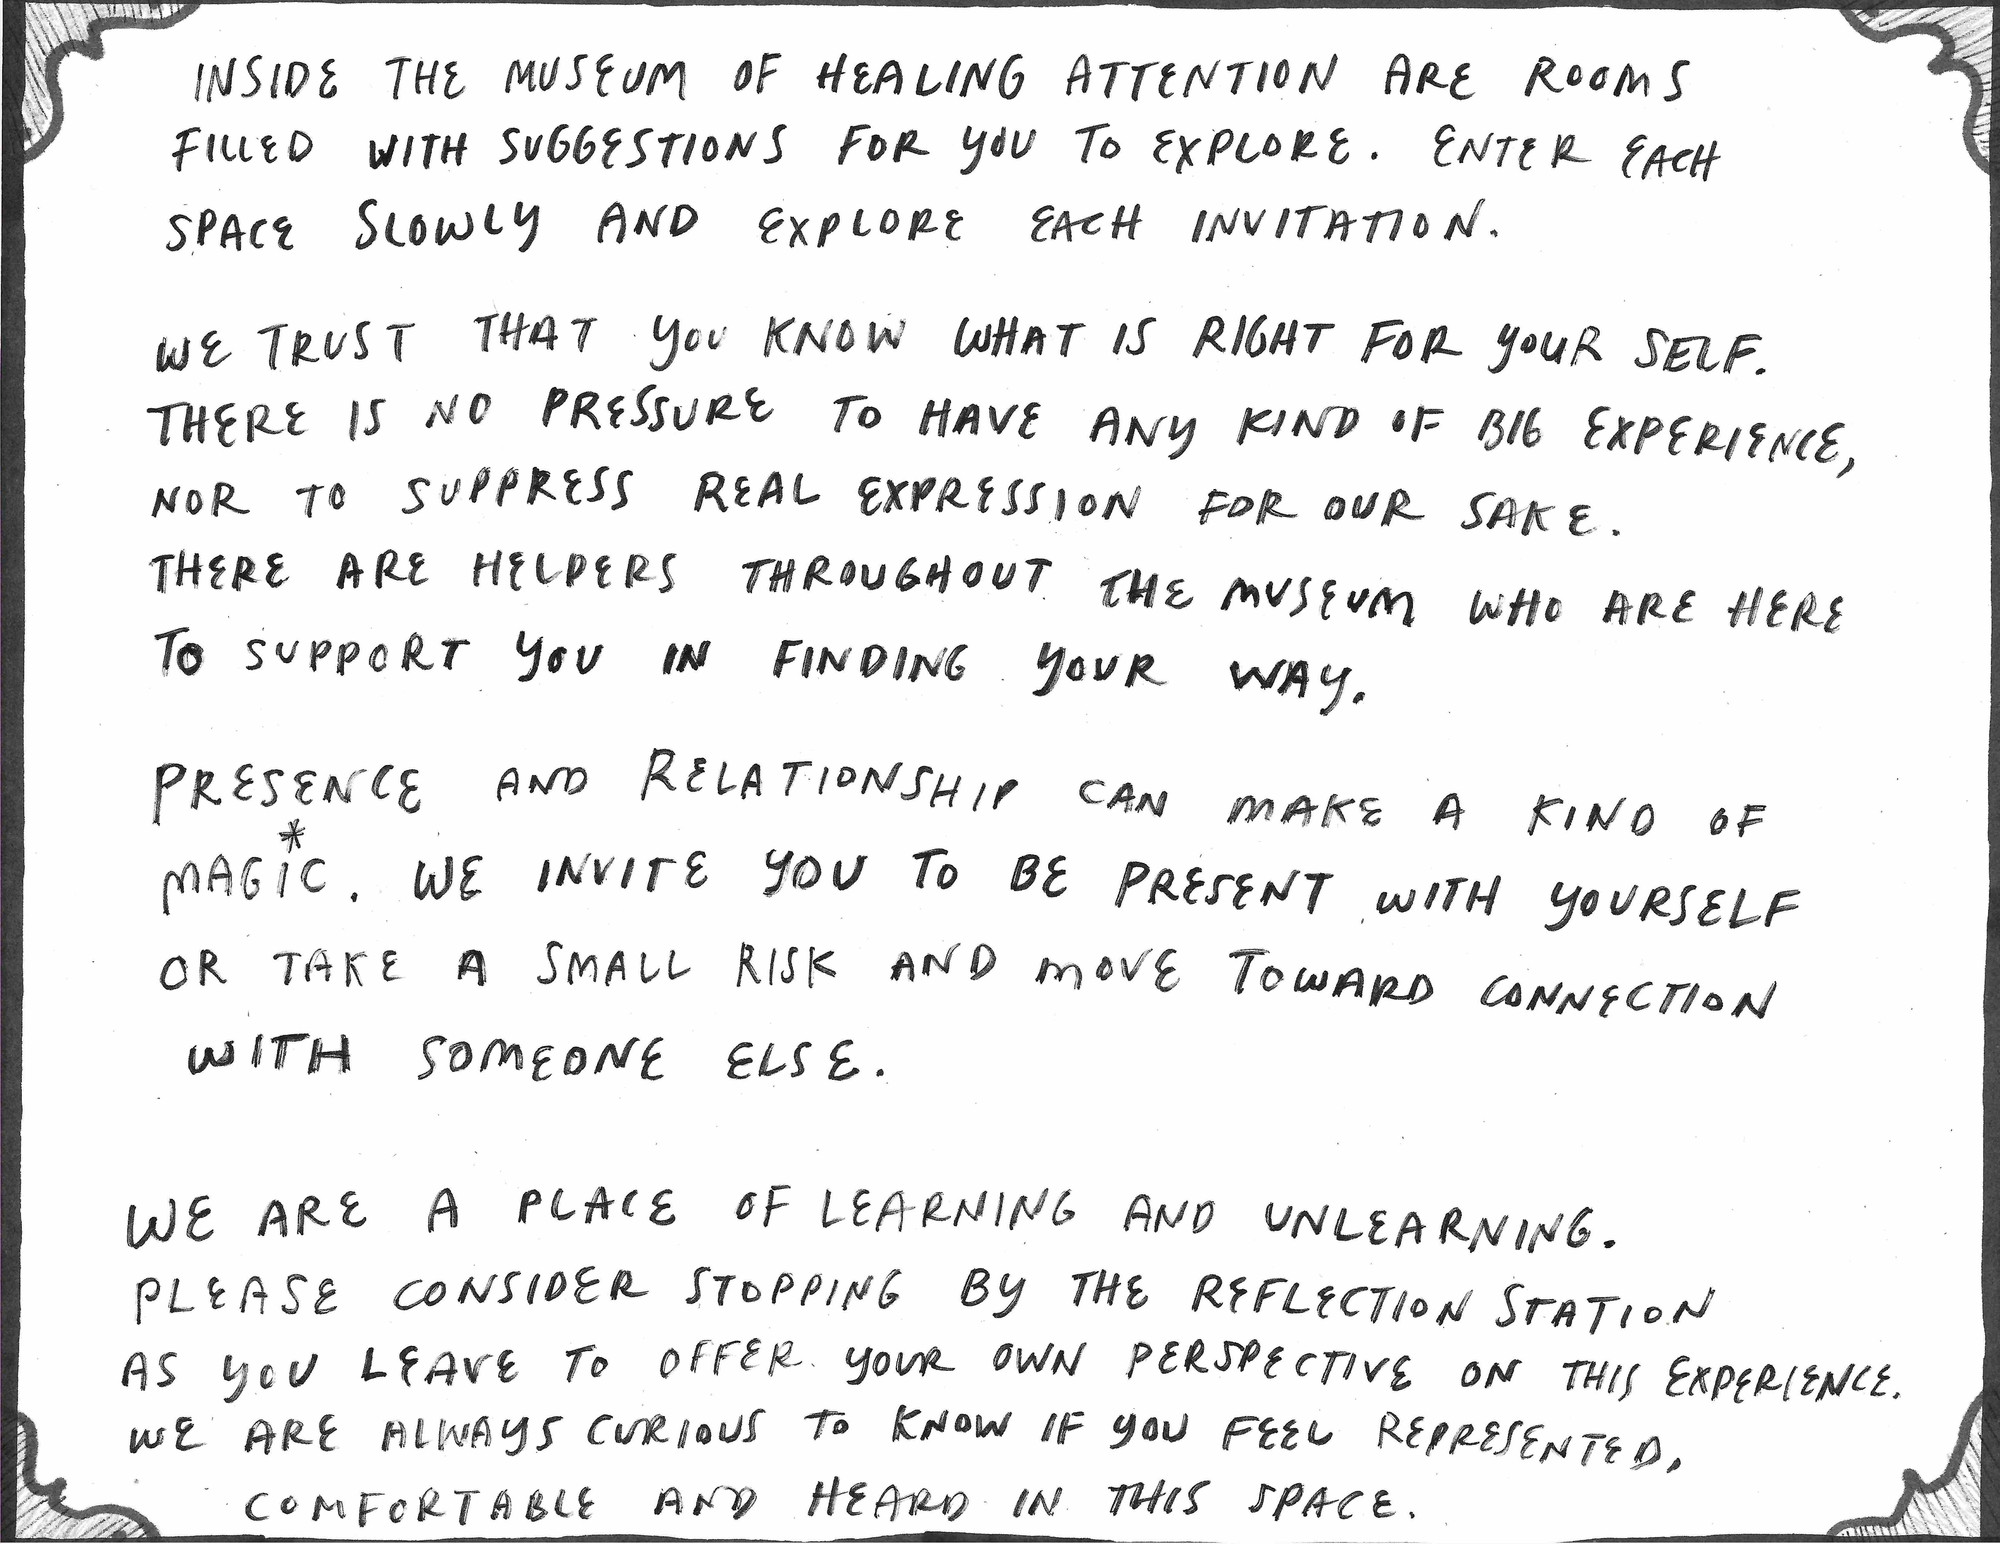 INSIDE THE MUSEUM OF HEALING ATTENTION ARE ROOMS
FILLED WITH SUGGESTIONS FOR YOU TO EXPLORE. ENTER EACH
SPACE SLOWLY AND EXPLORE EACH INVITATION.
WE TRUST THAT YOU KNOW WHAT IS RIGHT FOR YOUR SELF.
THERE IS NO PRESSURE TO HAVE ANY KIND OF BIG EXPERIENCE,
NOR TO SUPPRESS REAL EXPRESSION FOR OUR SAKE.
THERE ARE HELPERS THROUGHOUT THE MUSEUM WHO ARE HERE
TO SUPPORT YOU IN FINDING YOUR WAY.
PRESENCE AND RELATIONSHIP CAN MAKE A KIND OF
MAGIC*. WE INVITE YOU TO BE PRESENT WITH YOURSELF
OR TAKE A SMALL RISK AND MOVE TOWARD CONNECTION
WITH SOMEONE ELSE.
WE ARE A PLACE OF LEARNING AND UNLEARNING.
PLEASE CONSIDER STOPPING BY THE REFLECTION STATION
AS YOU LEAVE TO OFFER YOUR OWN PERSPECTIVE ON THIS EXPERIENCE.
WE ARE ALWAYS CURIOUS TO KNOW IF YOU FEEL REPRESENTED,
COMFORTABLE AND HEARD IN THIS SPACE.